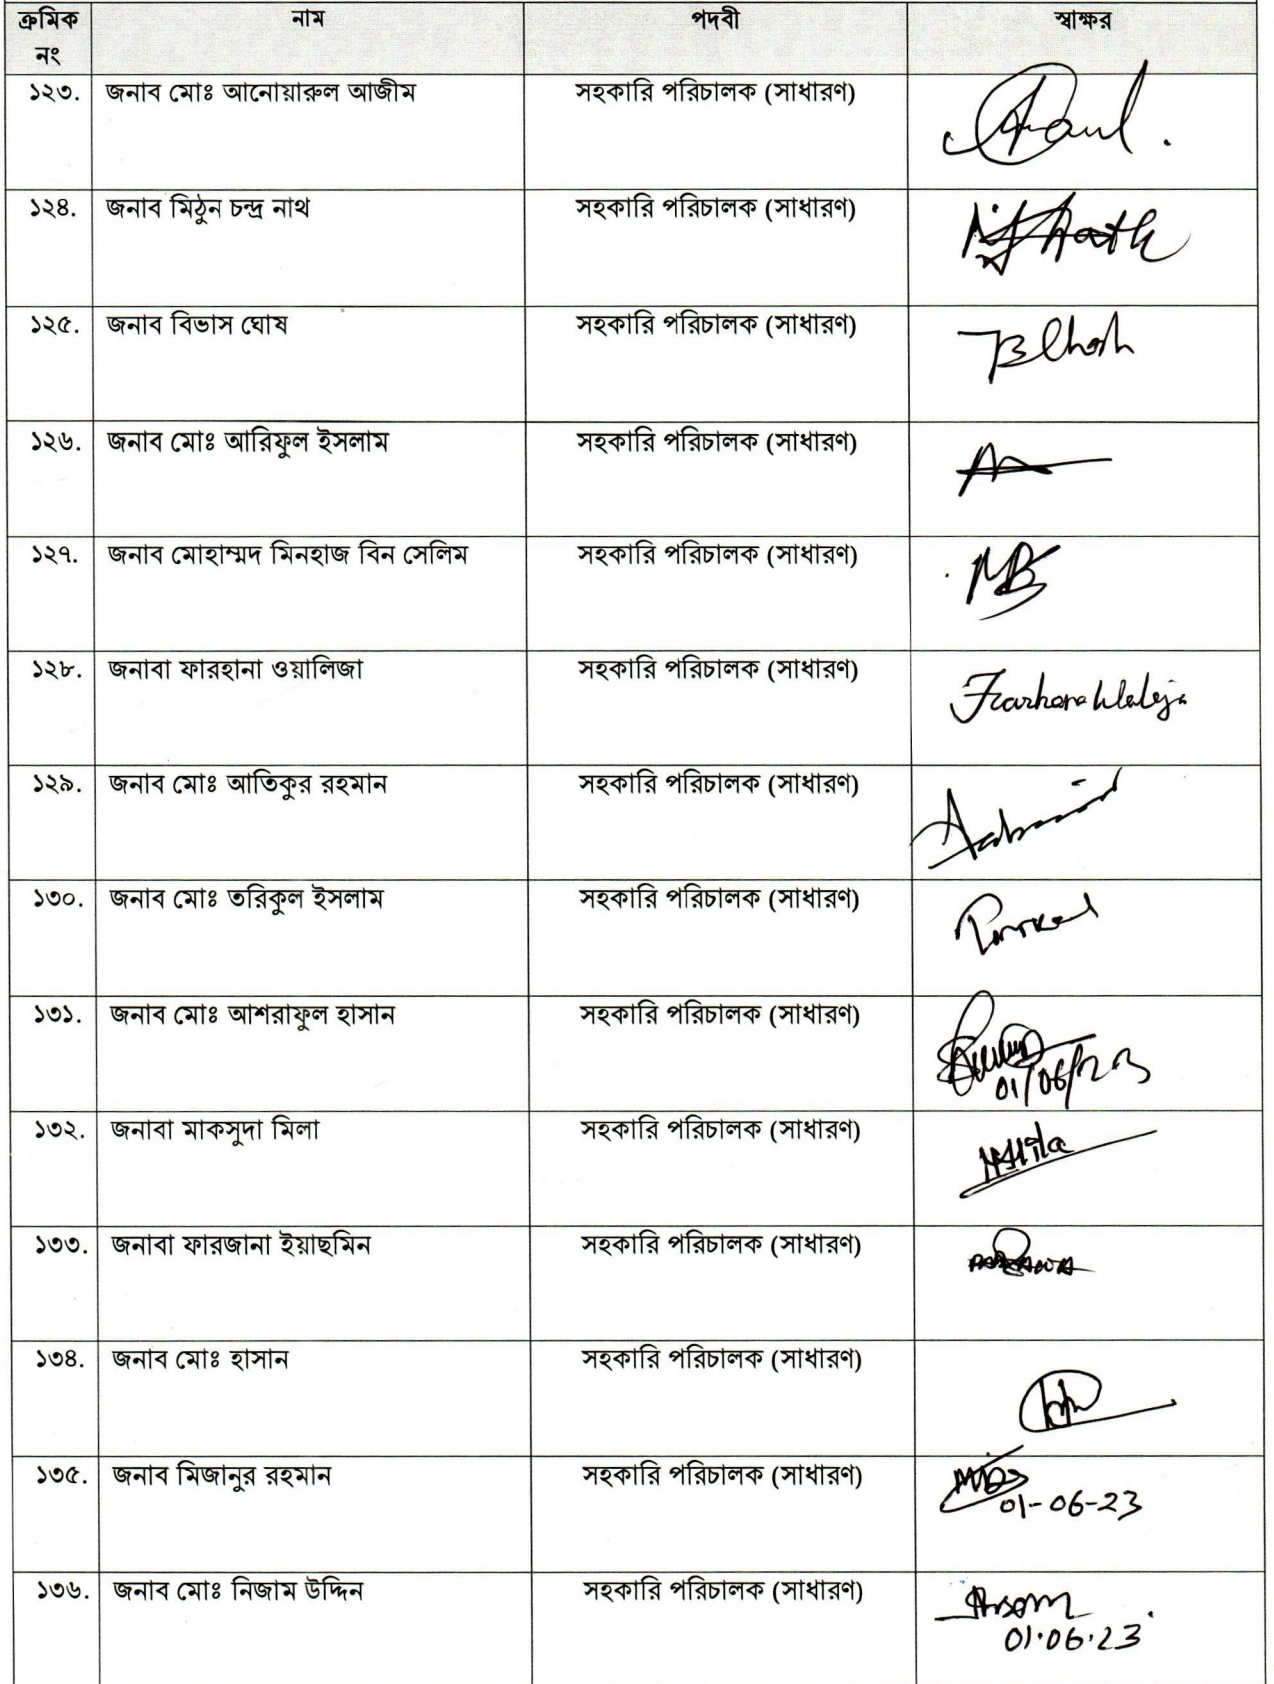 ক্রমিক নং নাম পদবী স্বাক্ষর
১২৩. জনাব মোঃ আনোয়ারুল আজীম সহকারি পরিচালক (সাধারণ)
১২৪. জনাব মিঠুন চন্দ্র নাথ সহকারি পরিচালক (সাধারণ)
১২৫. জনাব বিভাস ঘোষ সহকারি পরিচালক (সাধারণ)
১২৬. জনাব মোঃ আরিফুল ইসলাম সহকারি পরিচালক (সাধারণ)
১২৭. জনাব মোহাম্মদ মিনহাজ বিন সেলিম সহকারি পরিচালক (সাধারণ)
১২৮. জনাবা ফারহানা ওয়ালিজা সহকারি পরিচালক (সাধারণ)
১২৯. জনাব মোঃ আতিকুর রহমান সহকারি পরিচালক (সাধারণ)
১৩০. জনাব মোঃ তরিকুল ইসলাম সহকারি পরিচালক (সাধারণ)
১৩১. জনাব মোঃ আশরাফুল হাসান সহকারি পরিচালক (সাধারণ)
01/06/23
১৩২. জনাবা মাকসুদা মিলা সহকারি পরিচালক (সাধারণ)
১৩৩. জনাবা ফারজানা ইয়াছমিন সহকারি পরিচালক (সাধারণ)
১৩৪. জনাব মোঃ হাসান সহকারি পরিচালক (সাধারণ)
১৩৫. জনাব মিজানুর রহমান সহকারি পরিচালক (সাধারণ)
01-06-23
১৩৬. জনাব মোঃ নিজাম উদ্দিন সহকারি পরিচালক (সাধারণ)
01.06.23